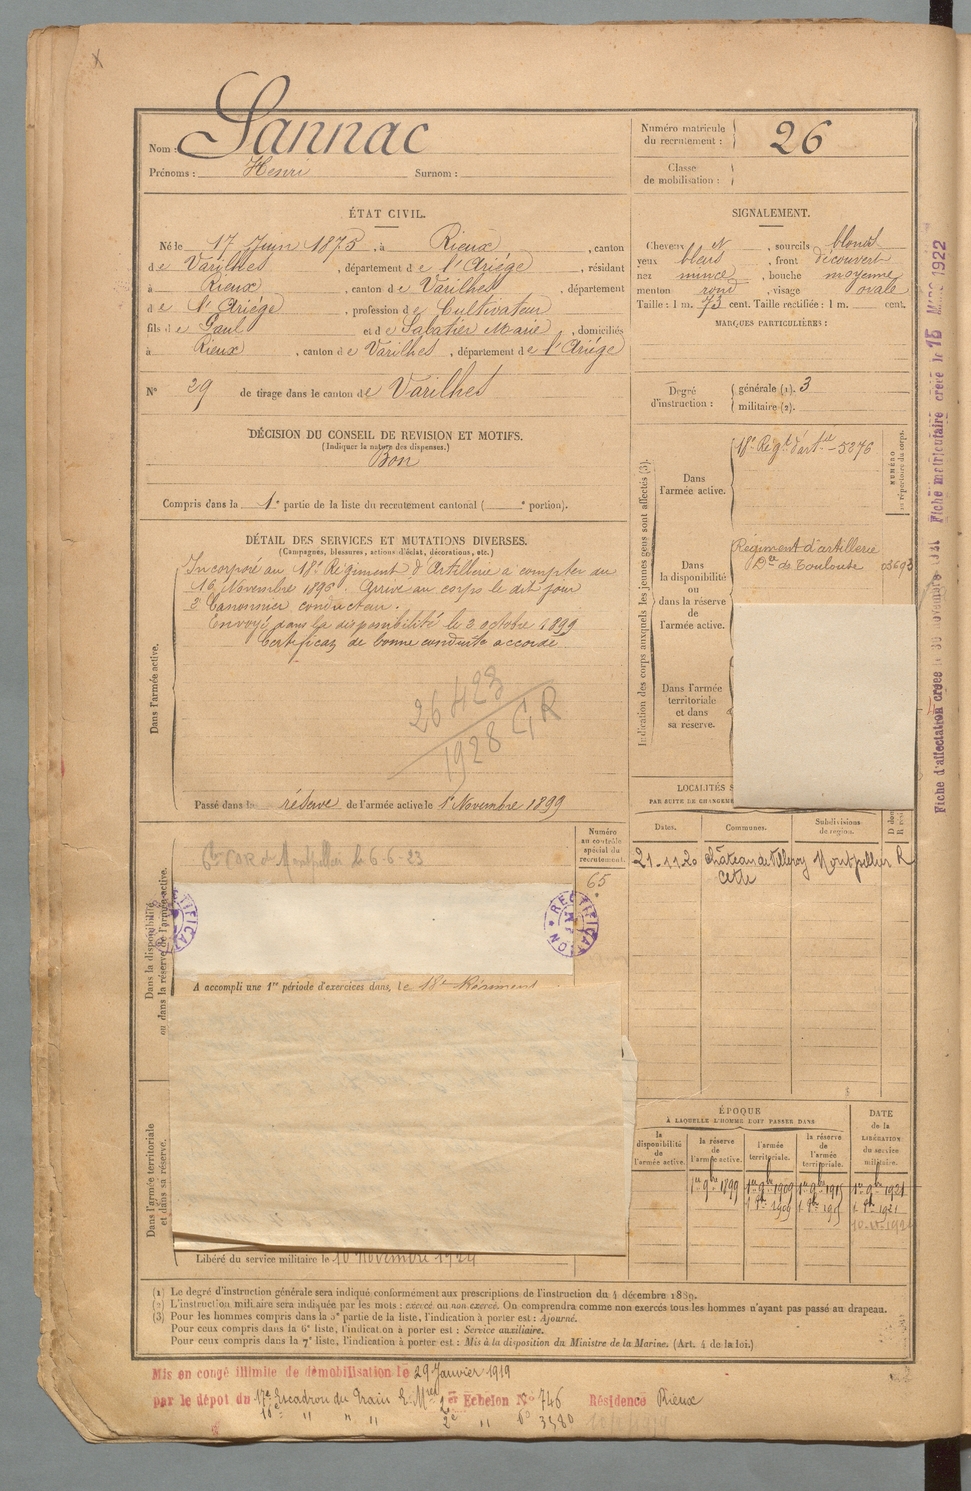 x
Nom : Sannac
Prénoms : Henri Surnom :
Numéro matricule du recrutement : 26
Classe de mobilisation :
ÉTAT CIVIL.
Né le 17 Juin 1875, à Rieux, canton
de Varilhes, département de l'Ariége, résidant
à Rieux, canton de Varilhes, département
de l'Ariége, profession de Cultivateur
fils de Paul et de Sabatier Marie, domiciliés
à Rieux, canton de Varilhes, département de l'Ariége
N° 29 de tirage dans le canton de Varilhes
SIGNALEMENT.
Cheveux N, sourcils blonds
yeux bleus, front découvert
nez mince, bouche moyenne
menton rond, visage ovale
Taille : 1 m. 73 cent. Taille rectifiée : 1 m. cent.
MARQUES PARTICULIÈRES :
Degré d'instruction : générale (1). 3
militaire (2).
DÉCISION DU CONSEIL DE REVISION ET MOTIFS.
(Indiquer la nature des dispenses.)
Bon
Compris dans la 1e partie de la liste du recrutement cantonal ( e portion).
DÉTAIL DES SERVICES ET MUTATIONS DIVERSES.
(Campagnes, blessures, actions d'éclat, décorations, etc.)
Dans l'armée active.
Incorporé au 18e Régiment d'Artillerie a compter du
16 Novembre 1896. Arrivé au corps le dit jour
2e Canonnier conducteur.
Envoyé dans la disponibilité le 3 octobre 1899
Certificat de bonne conduite accordé
26423
1928 GR
Passé dans la réserve de l'armée active le 1er Novembre 1899
Indication des corps auxquels les jeunes gens sont affectés (3).
Dans l'armée active.
18e Régt d'art - 5376
NUMÉRO au répertoire du corps.
Dans la disponibilité ou dans la réserve de l'armée active.
Régiment d'artillerie
de Toulouse 03693
Dans l'armée territoriale et dans sa réserve.
LOCALITÉS S
PAR SUITE DE CHANGEME
Dates. Communes. Subdivisions de région. D dom R rési
21-11-20 Château de Villeroy Montpellier R
Cette
Numéro au contrôle spécial du recrutement.
65
Dans la disponibilité ou dans la réserve de l'armée active.
Montpellier le 6-6-23
RECTIFICATION
RECTIFICATION
A accompli une 1re période d'exercices dans, le 18e Régiment
Dans l'armée territoriale et dans sa réserve.
Libéré du service militaire le 10 novembre 1921
ÉPOQUE
À LAQUELLE L'HOMME DOIT PASSER DANS
la disponibilité de l'armée active.
la réserve de l'armée active.
l'armée territoriale.
la réserve de l'armée territoriale.
DATE de la LIBÉRATION du service militaire.
1er 9bre 1899 1er 9bre 1909 1er 9bre 1915 1er 9bre 1921
(1) Le degré d'instruction générale sera indiqué conformément aux prescriptions de l'instruction du 4 décembre 1889.
(2) L'instruction militaire sera indiquée par les mots : exercé ou non exercé. On comprendra comme non exercés tous les hommes n'ayant pas passé au drapeau.
(3) Pour les hommes compris dans la 5e partie de la liste, l'indication à porter est : Ajourné.
Pour ceux compris dans la 6e liste, l'indication à porter est : Service auxiliaire.
Pour ceux compris dans la 7e liste, l'indication à porter est : Mis à la disposition du Ministre de la Marine. (Art. 4 de la loi.)
Mis en congé illimité de démobilisation le 29 Janvier 1919
par le dépôt du 17e Escadron du Train 1er Echelon N° 746 Résidence Rieux
16e " " " 2e " 3580
Fiche d'affectation créée le 30 novembre 1921 Fiche matriculaire créée le 15 MARS 1922